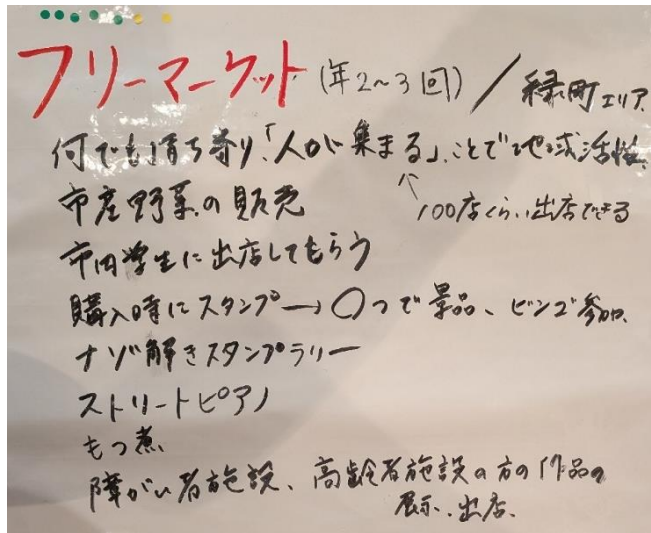 フリーマーケット (年2〜3回) / 緑町エリア
何でも持ち寄り「人が集まる」ことで地域活性
↑100店くらい出店できる
市産野菜の販売
市内学生に出店してもらう
購入時にスタンプ→〇つで景品、ビンゴ参加
ナゾ解きスタンプラリー
ストリートピアノ
もつ煮
障がい者施設、高齢者施設の方の作品の
展示、出店